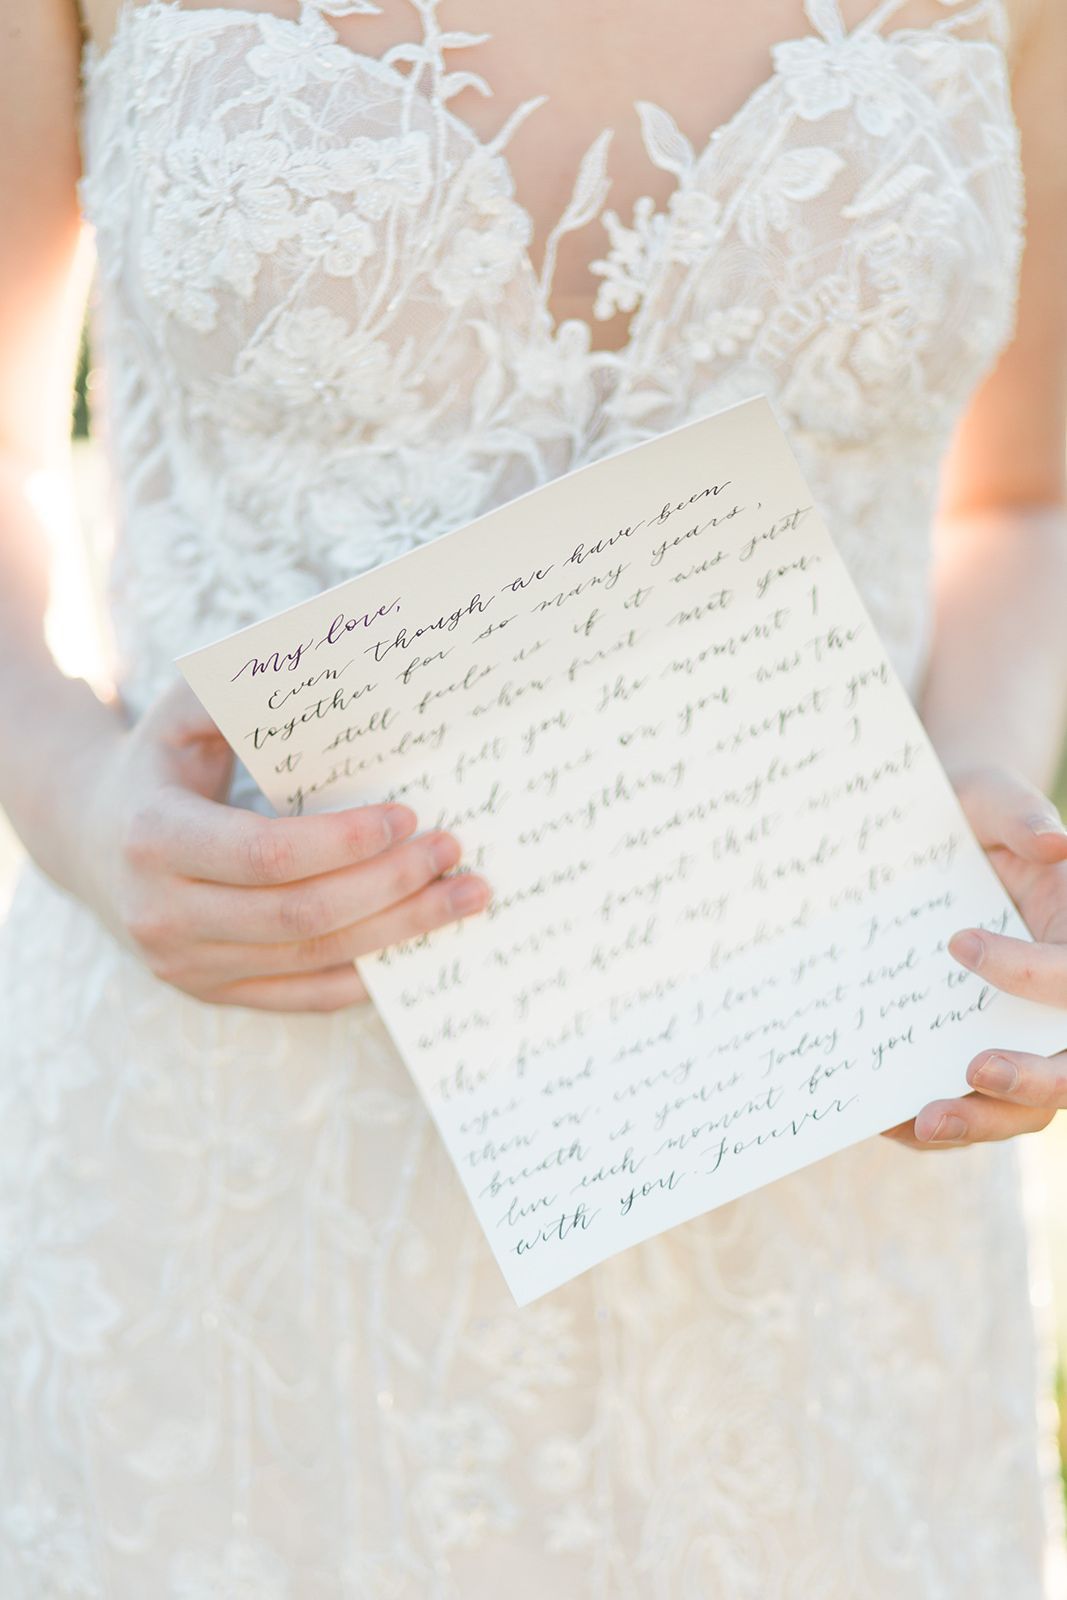 My love,
Even though we have been
together for so many years,
it still feels as if it was just
yesterday when first met you.
you felt you The moment I
laid eyes on you was the
everything except you
became meaningless I
will never forget that moment
when you held my hands for
the first time, looked into my
eyes and said I love you From
then on, every moment and every
breath is yours. Today I vow to
live each moment for you and
with you. Forever.